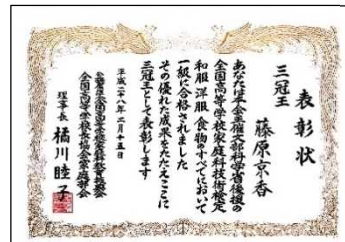 表彰状
三冠王
藤原京香
あなたは本会主催文部科学省後援の
全国高等学校家庭科技術検定
和服 洋服 食物のすべてにおいて
一級に合格されました
その優れた成果をたたえここに
三冠王として表彰します
平成二十八年二月十五日
全国高等学校長協会家庭部会
理事長 橘川睦子